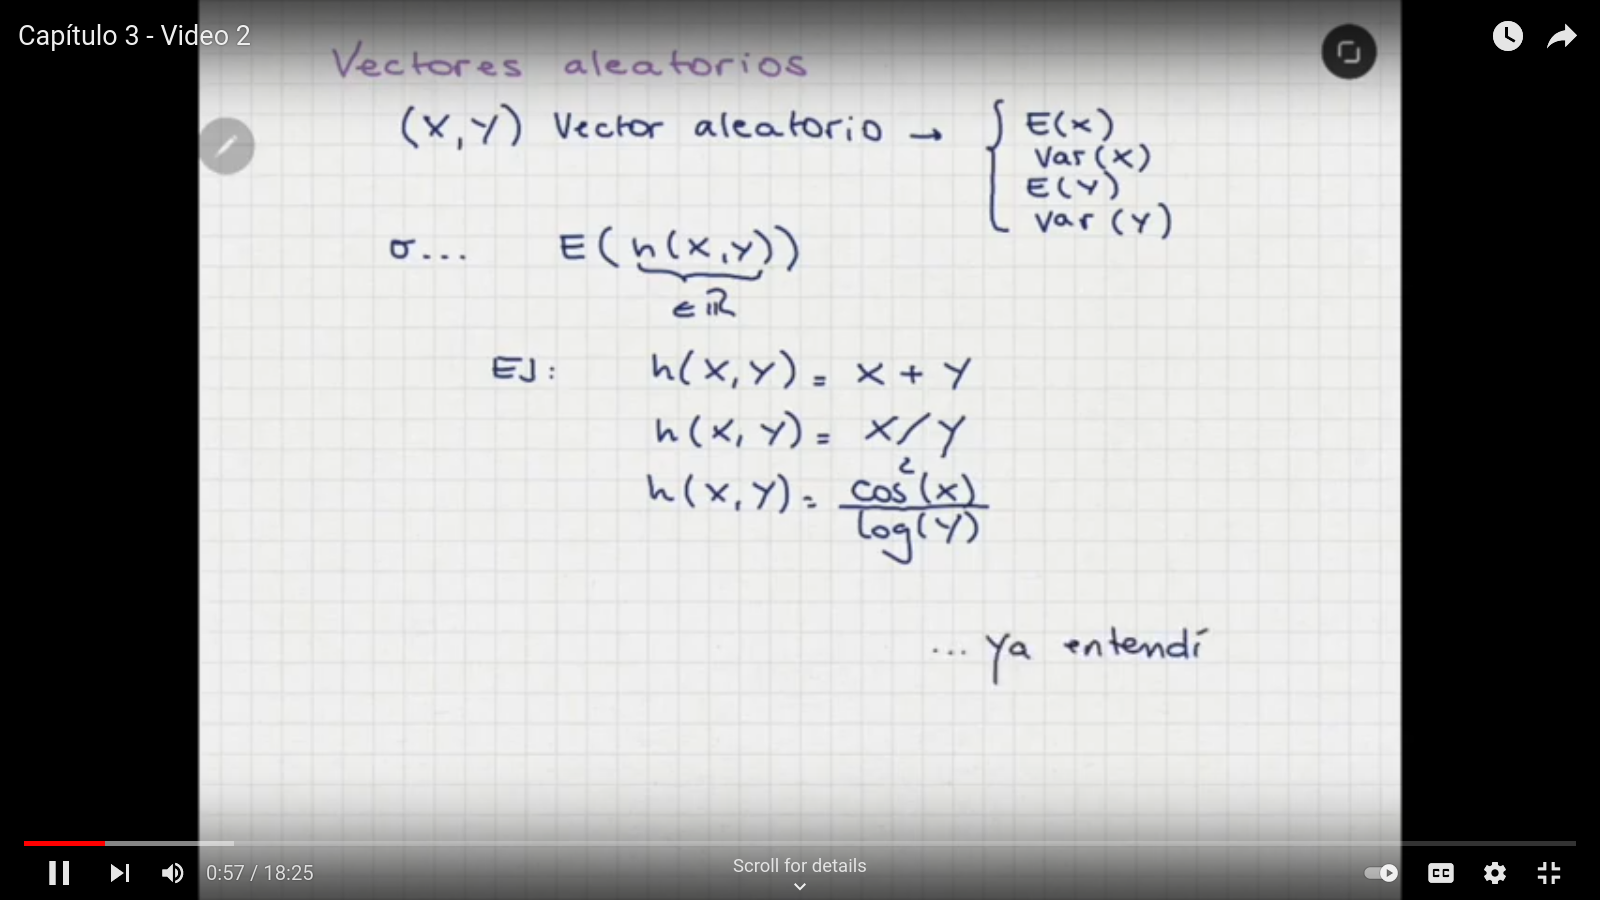 Capítulo 3 - Video 2
Vectores aleatorios
(X,Y) Vector aleatorio → { E(X)
Var(X)
E(Y)
Var(Y)
σ... E(h(X,Y))
∈ ℝ
EJ: h(X,Y) = X + Y
h(X,Y) = X/Y
h(X,Y) = cos²(X)
log(Y)
... Ya entendí
0:57 / 18:25
Scroll for details
CC